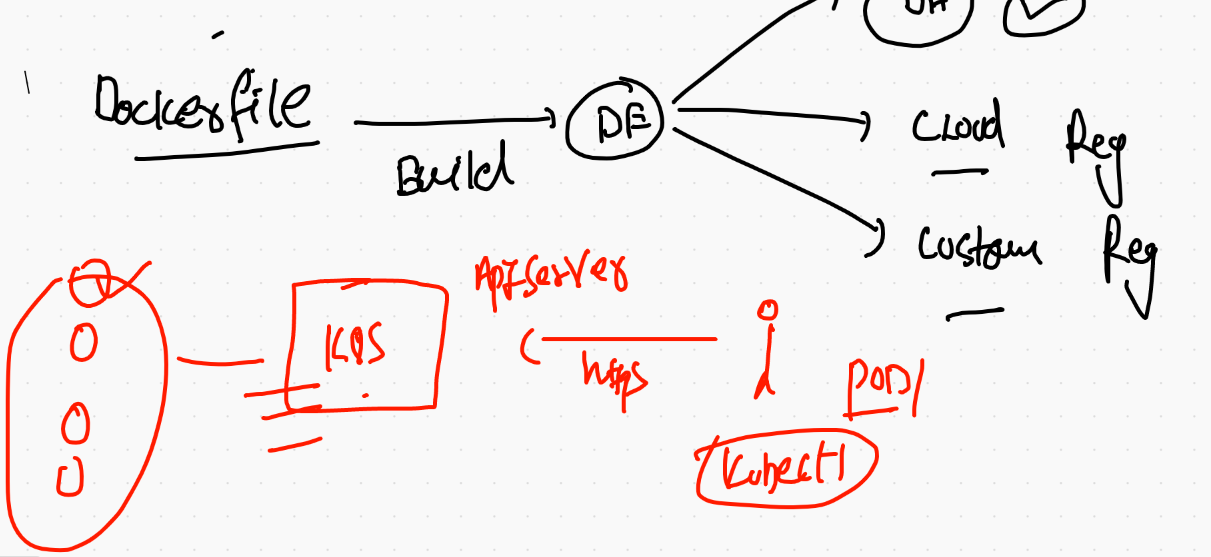 DH
Dockerfile
DE
Build
Cloud Reg
Custom Reg
ApiServer
K8S
https
POD/
Kubectl